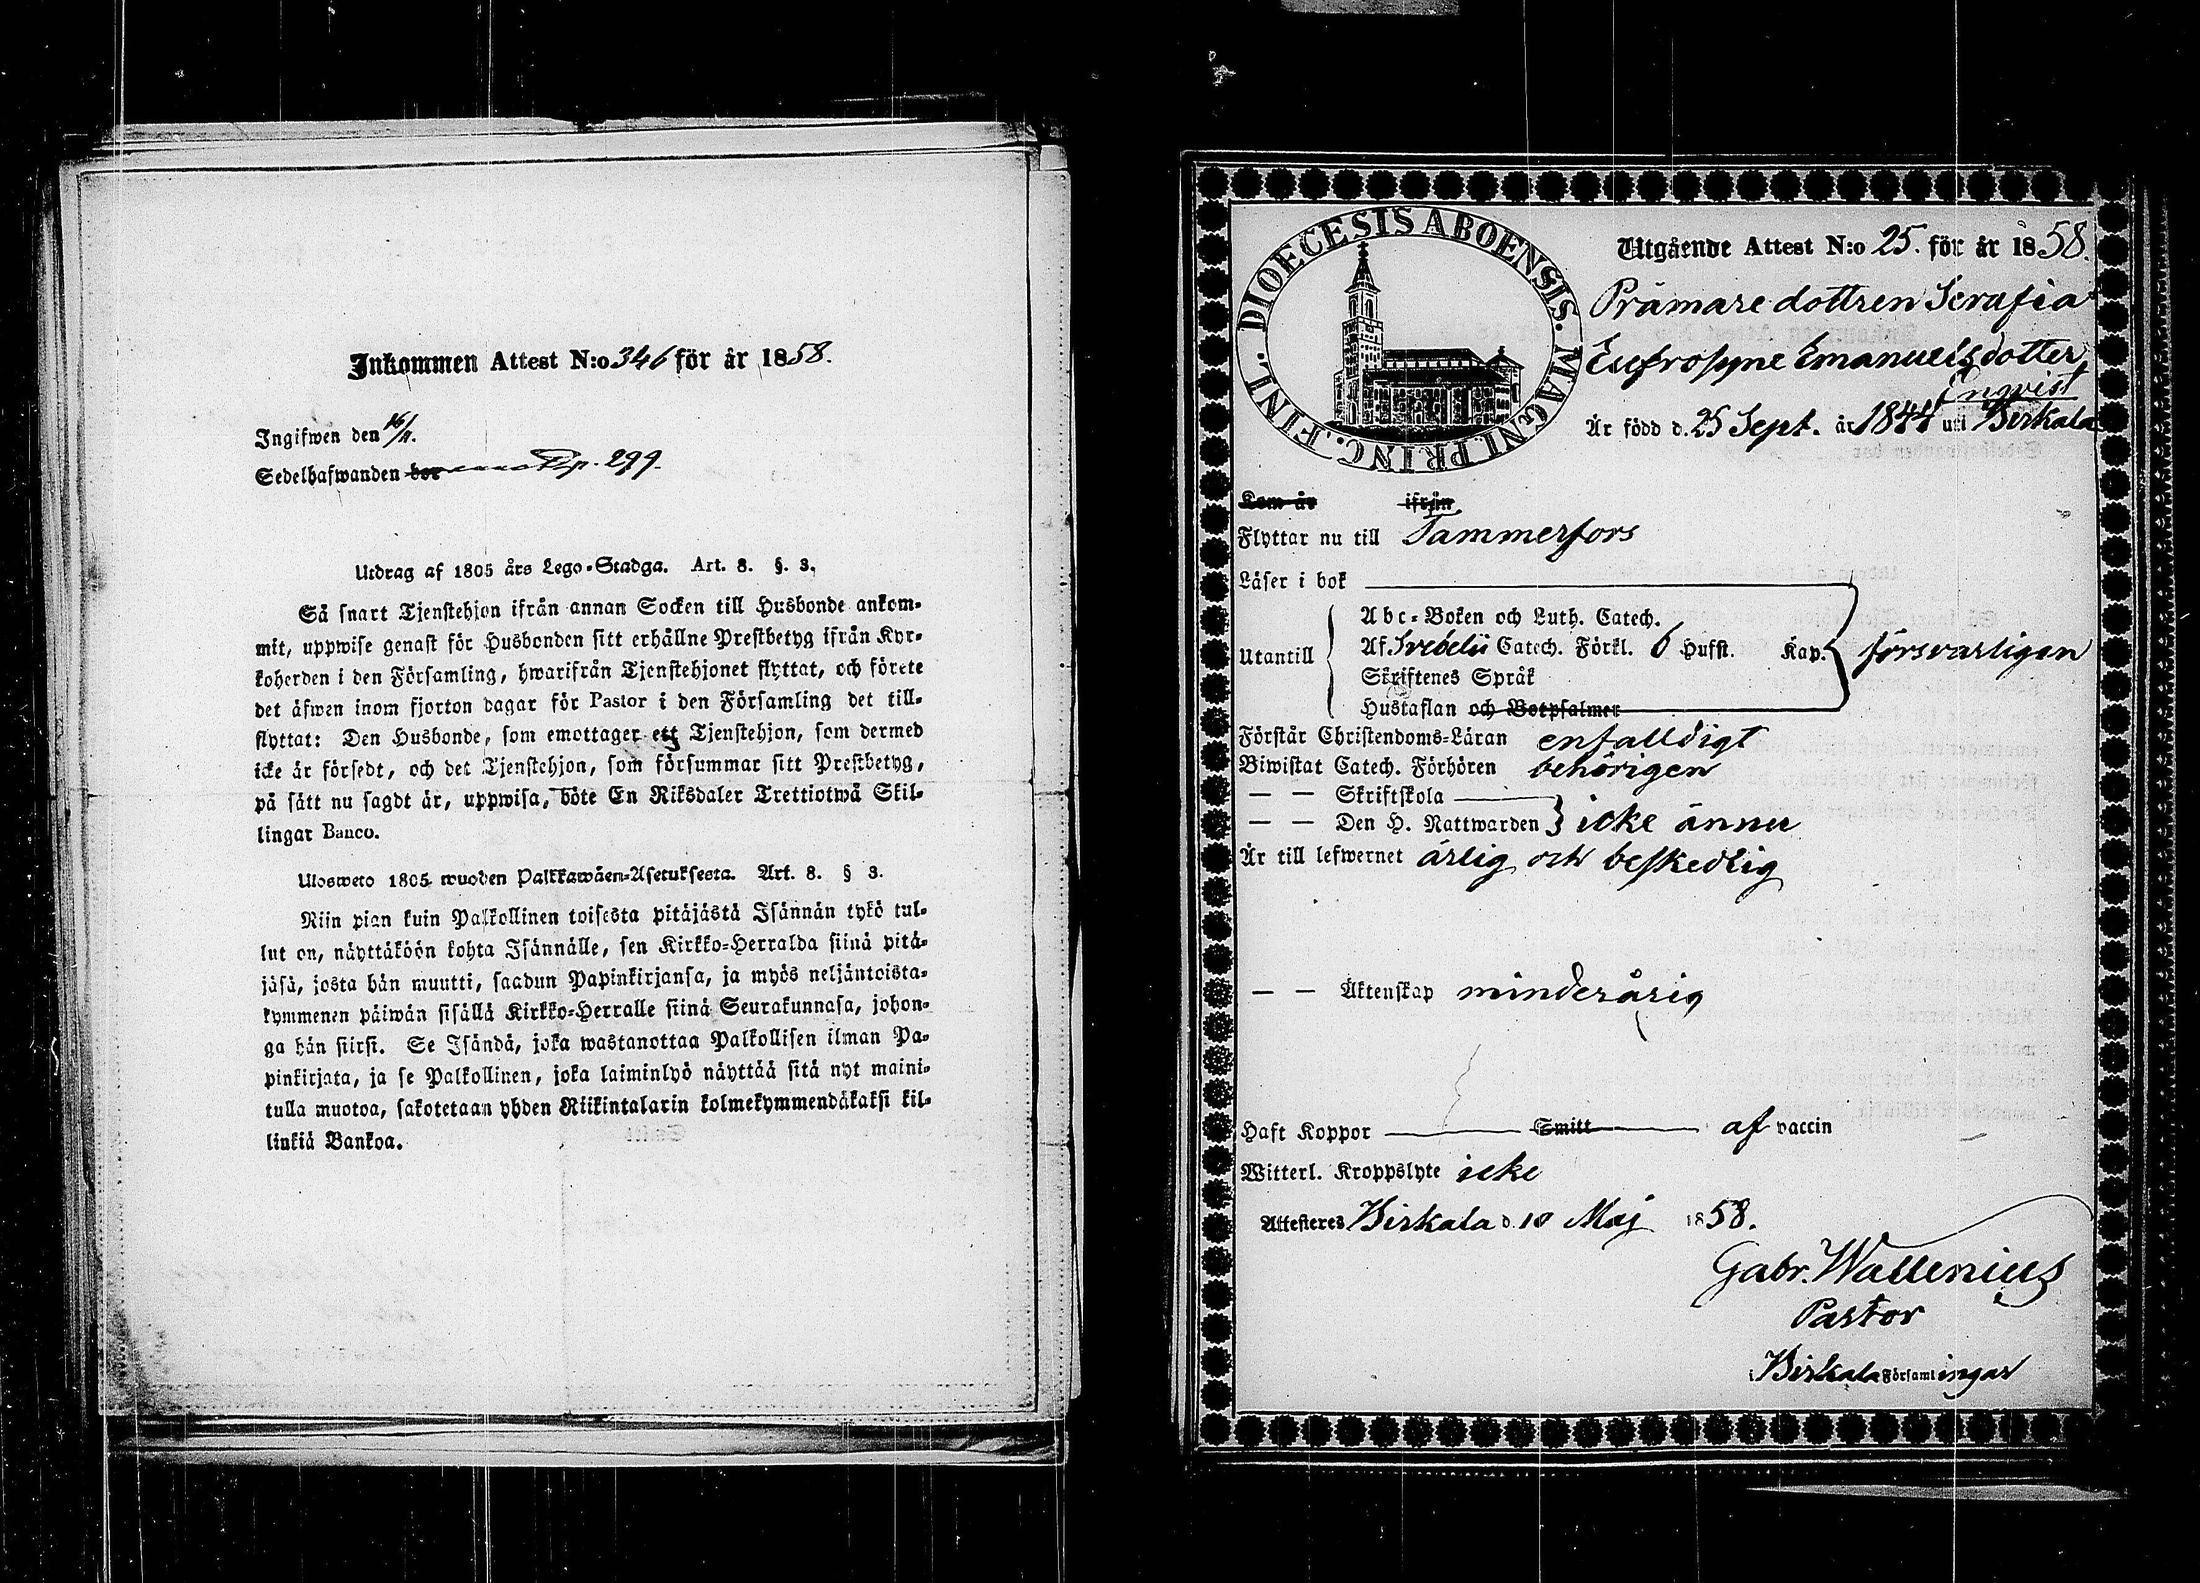 Inkommen Attest N:o 346 för år 1858.
Ingifwen den 16/11.
Sedelhafwanden bor p. 299.
Utdrag af 1805 års Lego-Stadga. Art. 8. §. 3.
Så snart Tjenstehjon ifrån annan Socken till Husbonde ankom-
mit, uppwise genast för Husbonden sitt erhållne Prestbetyg ifrån Kyr-
koherden i den Församling, hwarifrån Tjenstehjonet flyttat, och förete
det äfwen inom fjorton dagar för Pastor i den Församling det till-
flyttat: Den Husbonde, som emottager ett Tjenstehjon, som dermed
icke är försedt, och det Tjenstehjon, som försummar sitt Prestbetyg,
på sätt nu sagdt är, uppwisa, böte En Riksdaler Trettiotwå Skil-
lingar Banco.
Ulosweto 1805 wuoden Palkkawäen-Asetuksesta. Art. 8. § 3.
Niin pian kuin Palkollinen toisesta pitäjästä Isännän tykö tul-
lut on, näyttäköön kohta Isännälle, sen Kirkko-Herralda siinä pitä-
jäsä, josta hän muutti, saadun Papinkirjansa, ja myös neljäntoista-
kymmenen päiwän sisällä Kirkko-Herralle siinä Seurakunnasa, johon-
ga hän siirsi. Se Isändä, joka wastanottaa Palkollisen ilman Pa-
pinkirjata, ja se Palkollinen, joka laiminlyö näyttää sitä nyt maini-
tulla muotoa, sakotetaan yhden Riikintalarin kolmekymmendäkaksi kil-
linkiä Bankoa.
DIOECESIS ABOENSIS. MAGNI. PRINC. FINL.
Utgående Attest N:o 25. för år 1858.
Pråmare dottren Serafia
Eufrosyne Emanuelsdotter
Enqvist
Är född d. 25 Sept. år 1844 uti Birkala
Kom år ifrån
Flyttar nu till Tammerfors
Läser i bok
Abc-Boken och Luth. Catech.
Utantill Af Svebelii Catech. Förkl. 6 Hufst. Kap. försvarligen
Skriftenes Språk
Hustaflan och Botpsalmer
Förstår Christendoms-Läran enfalldigt
Biwistat Catech. Förhören behörigen
— — Skriftskola
— — Den H. Nattwarden icke ännu
Är till lefwernet ärlig och beskedlig
— — Äktenskap minderårig
Haft Koppor Smitt af vaccin
Witterl. Kroppslyte icke
Attesteres Birkala d. 10 Maj 1858.
Gabr. Wallenius
Pastor
i Birkala Församlingar